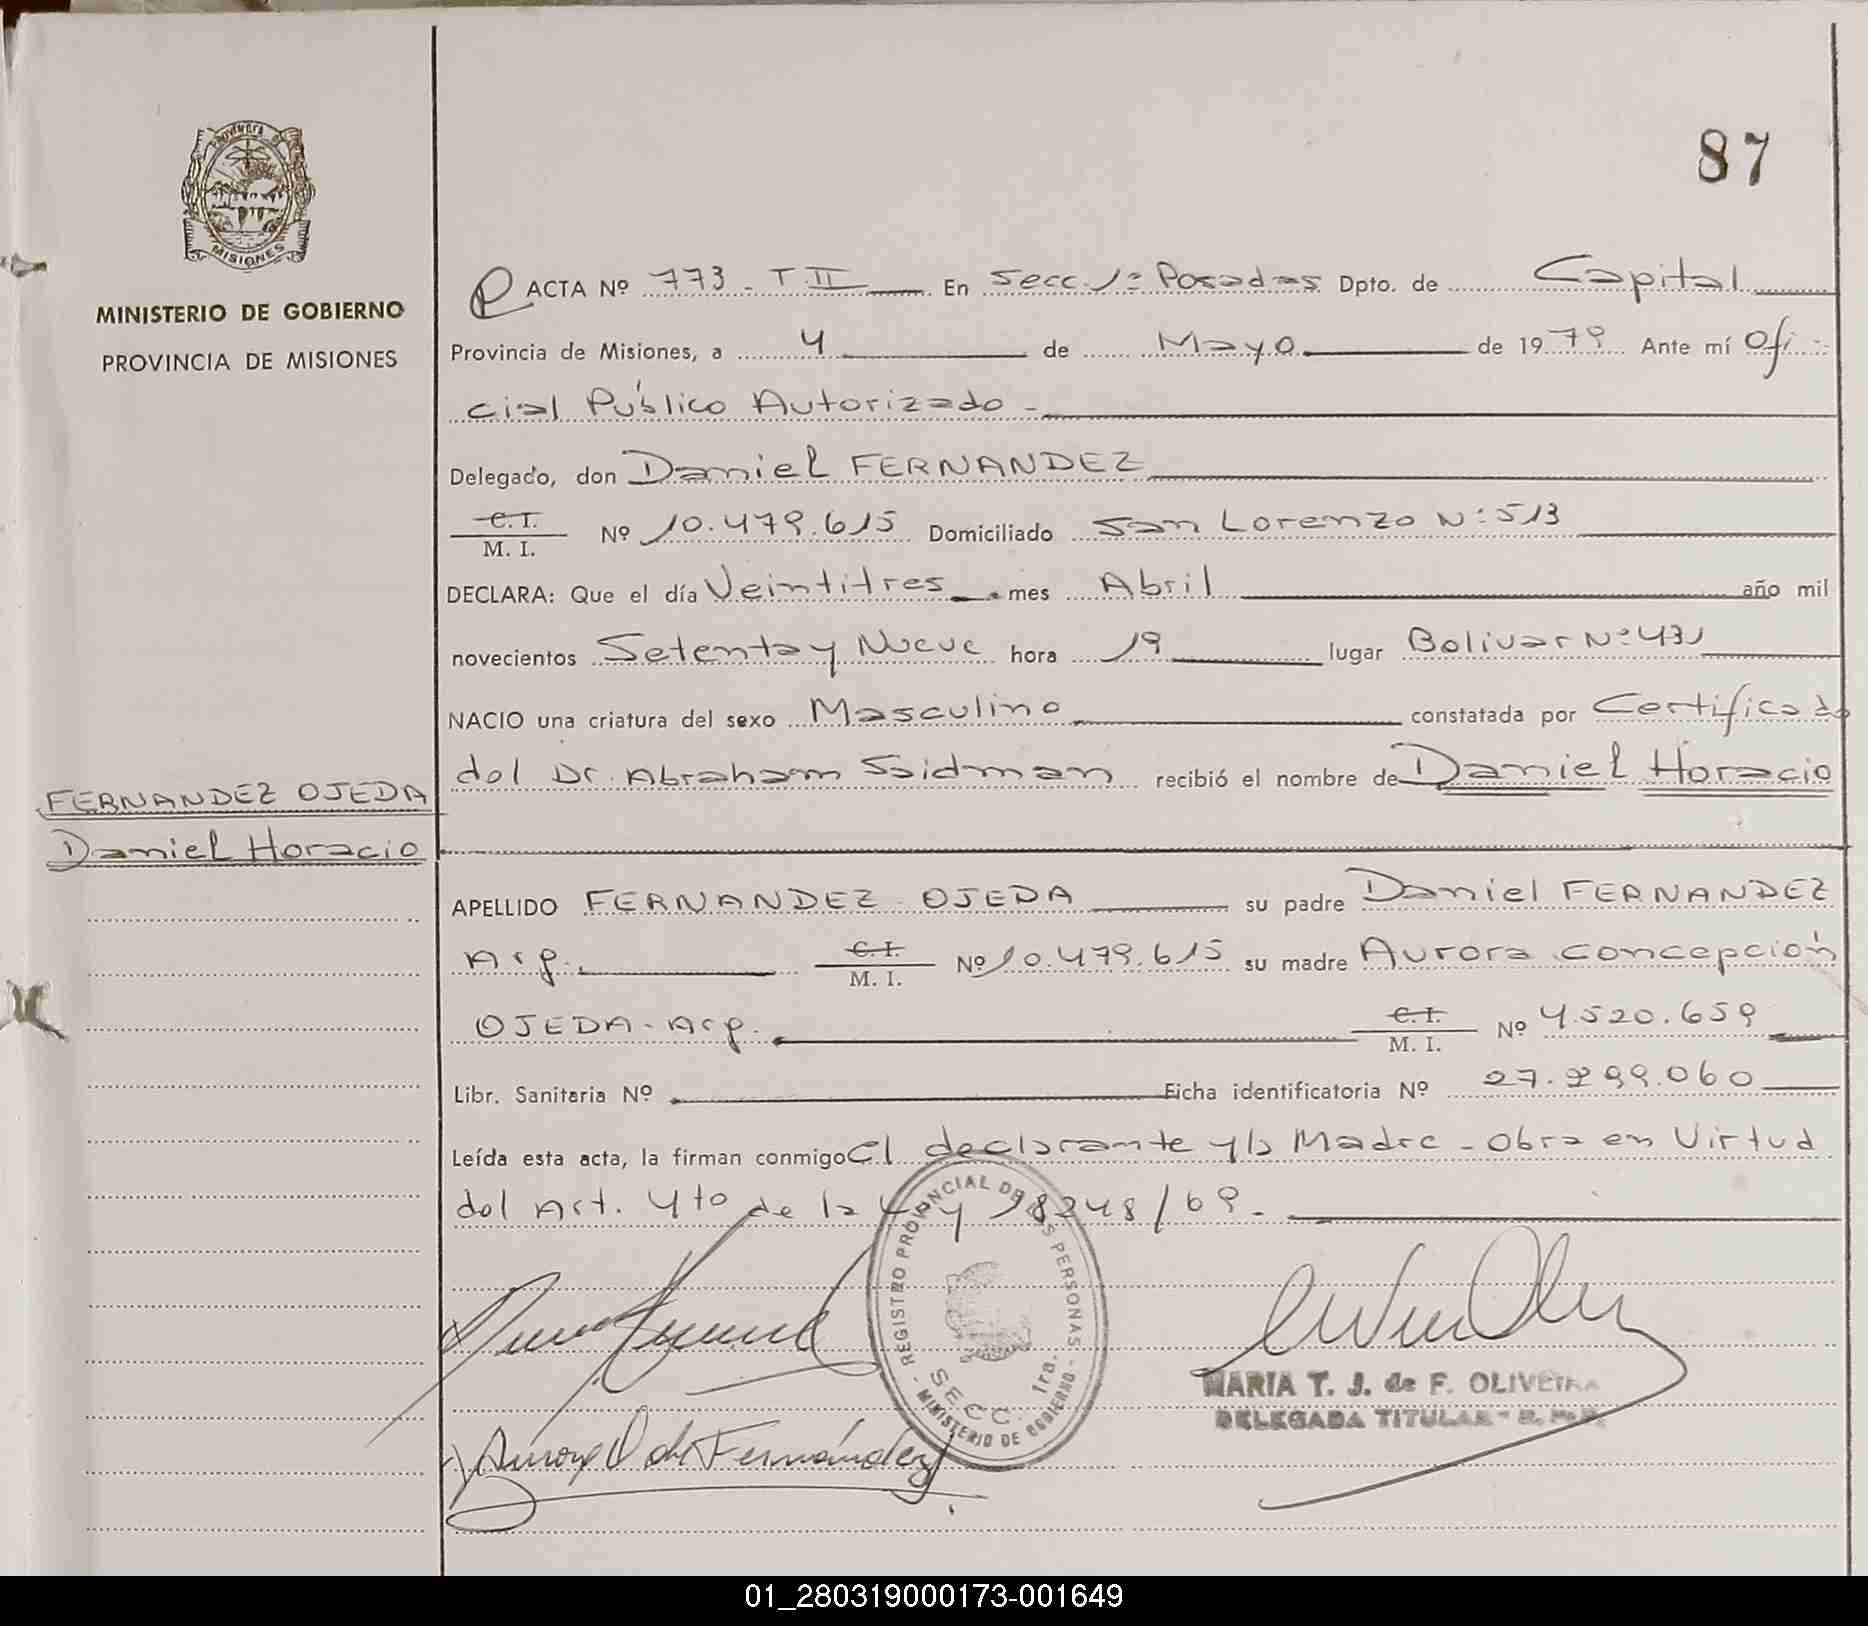 87
PROVINCIA DE
MISIONES
MINISTERIO DE GOBIERNO
PROVINCIA DE MISIONES
ACTA Nº 773 - T. II En Secc. 1ª Posadas Dpto. de Capital
Provincia de Misiones, a 4 de Mayo de 1979 Ante mí Ofi-
cial Público Autorizado -
Delegado, don Daniel FERNANDEZ
C. I.
M. I. Nº 10.479.615 Domiciliado San Lorenzo Nº 513
DECLARA: Que el día Veintitres mes Abril año mil
novecientos Setenta y Nueve hora 19 lugar Bolivar Nº 431
NACIO una criatura del sexo Masculino constatada por Certificado
del Dr. Abraham Saidman recibió el nombre de Daniel Horacio
FERNANDEZ OJEDA
Daniel Horacio
APELLIDO FERNANDEZ OJEDA su padre Daniel FERNANDEZ
Arg. C. I.
M. I. Nº 10.479.615 su madre Aurora Concepción
OJEDA - Arg. C. I.
M. I. Nº 4.520.659
Libr. Sanitaria Nº Ficha identificatoria Nº 27.299.060
Leída esta acta, la firman conmigo el declarante y la Madre - Obra en Virtud
del Art. 4to de la Ley 18248/69 -
REGISTRO PROVINCIAL DE LAS PERSONAS
SECC. 1ra.
- MINISTERIO DE GOBIERNO -
MARIA T. J. de F. OLIVEIRA
DELEGADA TITULAR -
Aurora O de Fernández
01_280319000173-001649